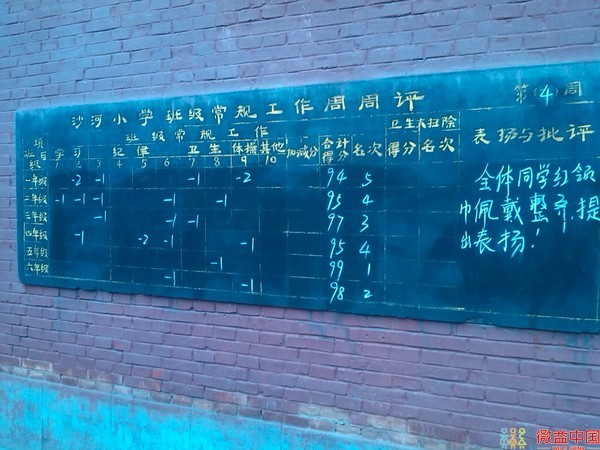 沙河小学班级常规工作周周评 第(4)周
项目 班级常规工作 卫生大扫除 表扬与批评
班级 学习 纪律 卫生 体操 其他 加减分 合计得分 名次 得分 名次
1 2 3 4 5 6 7 8 9 10
一年级 -2 -1 -1 -2 94 5
二年级 -1 -1 -1 -1 -1 95 4
三年级 -1 -1 -1 97 3
四年级 -1 -2 -1 -1 95 4
五年级 -1 99 1
六年级 -1 -1 98 2
全体同学红领
巾佩戴整齐,提
出表扬!
微益中国